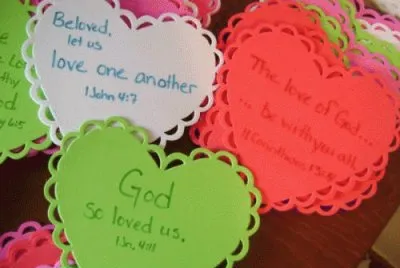 Beloved,
let us
love one another
1 John 4:7
The love of God...
... be with you all.
II Corinthians 13:
God
so loved us.
1 Jn. 4:11